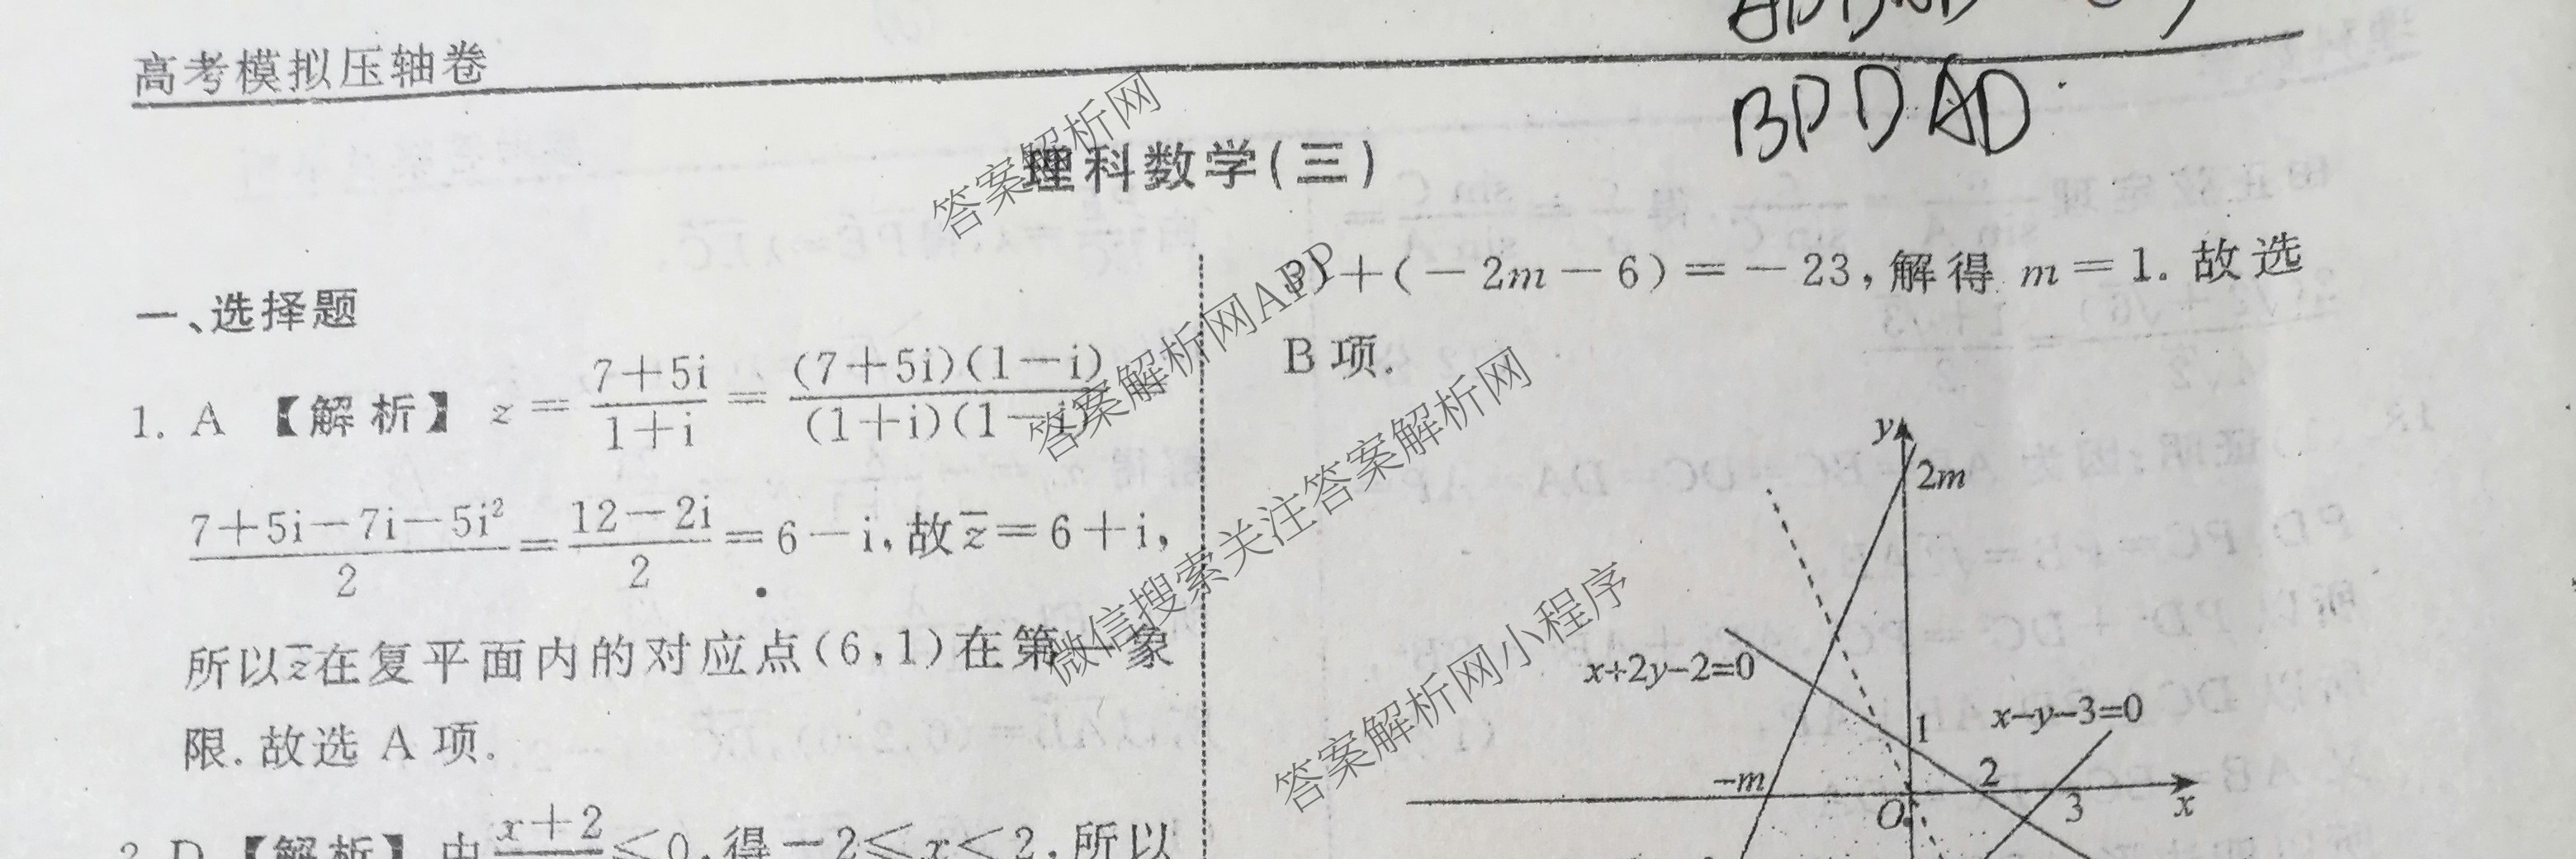 高考模拟压轴卷
BDDAD.
理科数学(三)
一、选择题
1. A 【解析】 z = \frac{7+5i}{1+i} = \frac{(7+5i)(1-i)}{(1+i)(1-i)}
\frac{7+5i-7i-5i²}{2} = \frac{12-2i}{2} = 6-i,故 \overline{z} = 6+i,
所以 \overline{z} 在复平面内的对应点(6,1)在第一象
限.故选 A 项.
2. D 【解析】由 \frac{x+2}{} ≤0,得-2≤x<2,所以
3)+(-2m-6)=-23,解得 m=1. 故选
B 项.
y
2m
x+2y-2=0
1
x-y-3=0
-m
2
O
3
x
答案解析网
答案解析网APP
微信搜索关注答案解析网
答案解析网小程序